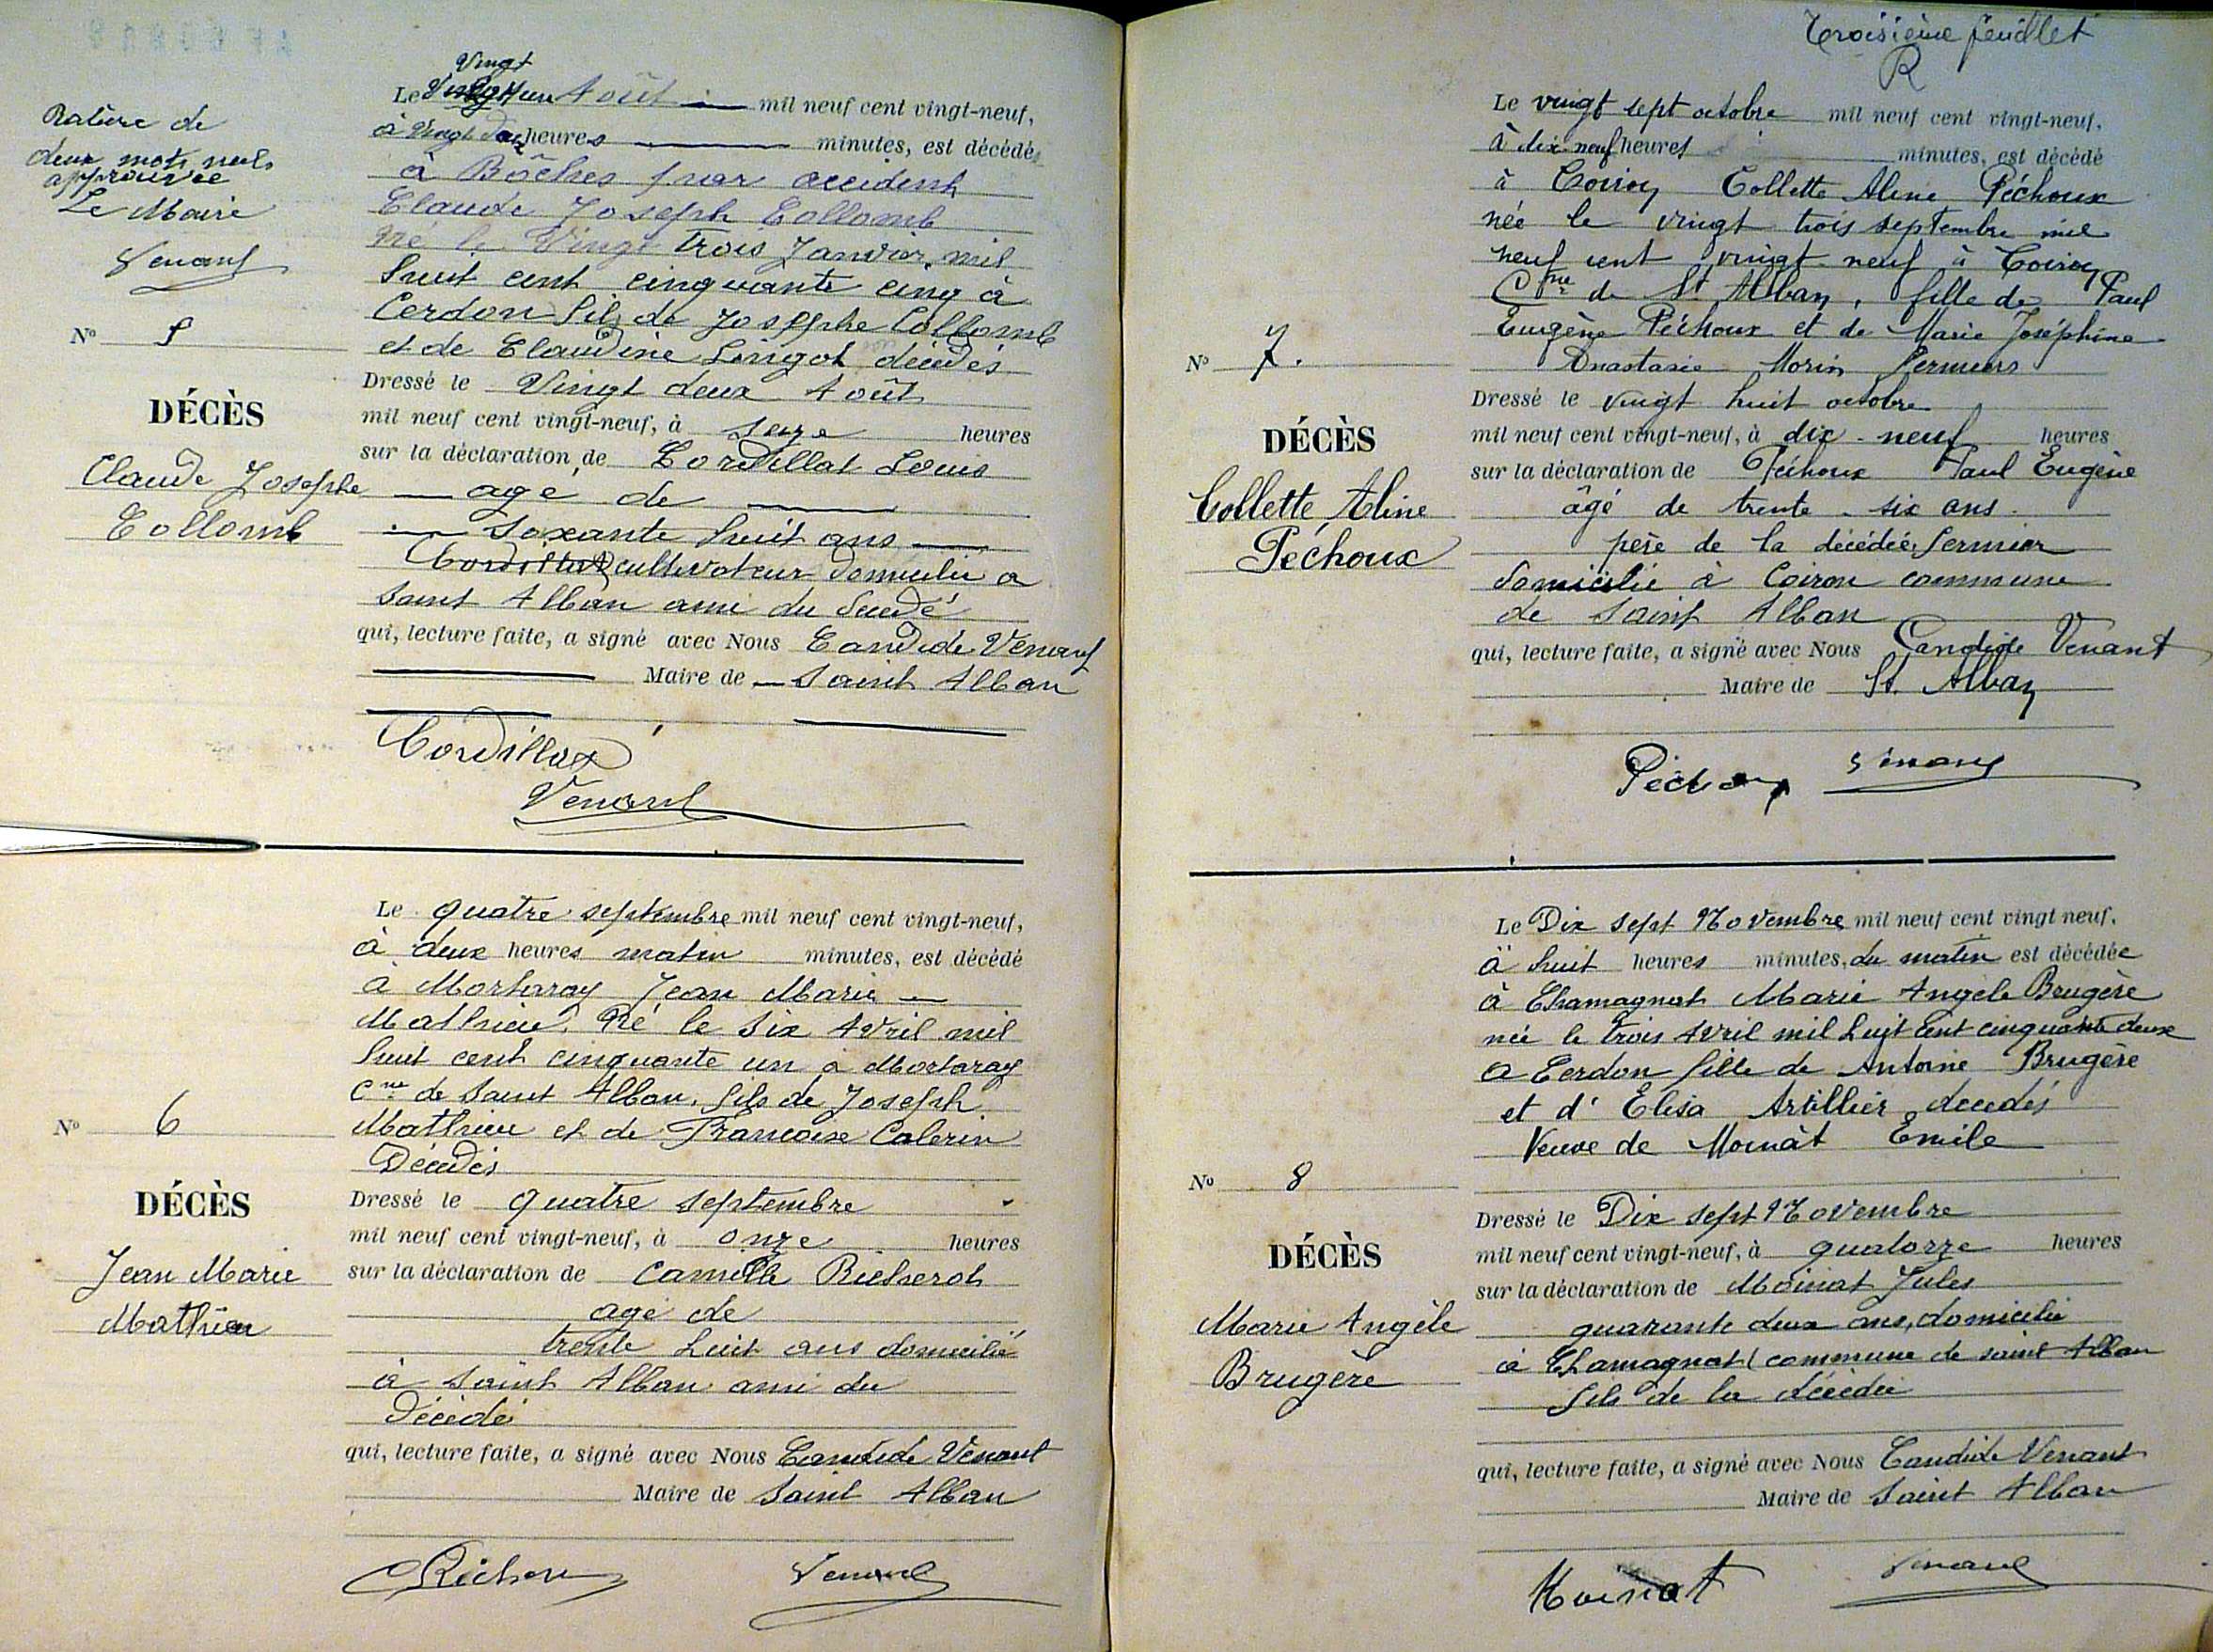 Rature de
deux mots nuls
approuvée
Le Maire
Venant
Vingt
Le Vingt un Août mil neuf cent vingt-neuf,
à Vingt heures minutes, est décédé
à Bôches par accident
Claude Joseph Collomb
né le Vingt trois Janvier mil
huit cent cinquante cinq à
Cerdon fils de Josepphe Collomb
et de Claudine Lingot décédés
Dressé le Vingt deux Août
mil neuf cent vingt-neuf, à seize heures
sur la déclaration de Cordillat Louis
agé de
soxante huit ans
Cordillat cultivateur domicilié a
Saint Alban ami du décédé
qui, lecture faite, a signé avec Nous Candide Venant
Maire de Saint Alban
Cordillat
Venant
No 5
DÉCÈS
Claude Josephe
Collomb
Le quatre septembre mil neuf cent vingt-neuf,
à deux heures matin minutes, est décédé
à Mortaray Jean Marie
Mathieu. Né le six Avril mil
huit cent cinquante un à Mortaray
Cne de Saint Alban. fils de Joseph
Mathieu et de Françoise Calerin
Décédés
Dressé le quatre septembre
mil neuf cent vingt-neuf, à onze heures
sur la déclaration de Camille
agé de
trente huit ans domicilié
à Saint Alban ami du
décédé
qui, lecture faite, a signé avec Nous Candide Venant
Maire de Saint Alban
Venant
No 6
DÉCÈS
Jean Marie
Mathieu
Troisième feuillet
R
Le vingt sept octobre mil neuf cent vingt-neuf,
à dix-neuf heures minutes, est décédé
à Coiron Collette Aline Péchoux
née le vingt trois septembre mil
neuf cent vingt-neuf à Coiron
Cne de St Alban, fille de Paul
Eugène Péchoux et de Marie Joséphine
Anastasie Morin fermiers
Dressé le vingt huit octobre
mil neuf cent vingt-neuf, à dix-neuf heures
sur la déclaration de Péchoux Paul Eugène
âgé de trente-six ans.
père de la décédée, fermier
domicilié à Coiron commune
de Saint Alban
qui, lecture faite, a signé avec Nous Candide Venant
Maire de St. Alban
Péchoux Venant
No 7.
DÉCÈS
Collette Aline
Péchoux
Le Dix sept Novembre mil neuf cent vingt neuf,
à huit heures minutes, du matin est décédée
à Chamagnat Marie Angèle Brugère
née le trois Avril mil huit cent cinquante deux
a Cerdon fille de Antoine Brugère
et d' Elisa Artillier décédés
Veuve de Moinat Emile
Dressé le Dix sept Novembre
mil neuf cent vingt-neuf, à quatorze heures
sur la déclaration de Moinat Jules
quarante deux ans, domicilié
à Chamagnat commune de saint Alban
fils de la décédée
qui, lecture faite, a signé avec Nous Candide Venant
Maire de Saint Alban
Moinat Venant
No 8
DÉCÈS
Marie Angèle
Brugère